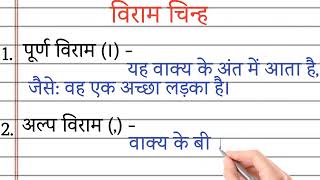 विराम चिन्ह
1. पूर्ण विराम (।) -
यह वाक्य के अंत में आता है,
जैसे: वह एक अच्छा लड़का है।
2. अल्प विराम (,) -
वाक्य के बी